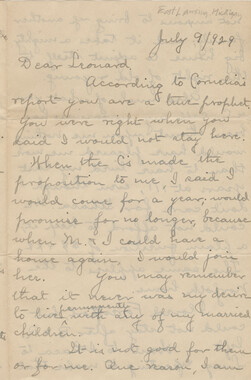 July 9/1929
Dear Leonard
According to Cornelia's
report you are a true prophet.
You were right when you
said I would not stay here.
When the Cs made the
proposition to me, I said I
would come for a year; would
promise for no longer, because
when M. & I could have a
house again I would join
her. You may remember
that it never was my desire
permanently
to live with any of my married
children.
It is not good for them
or for me. One reason, I am